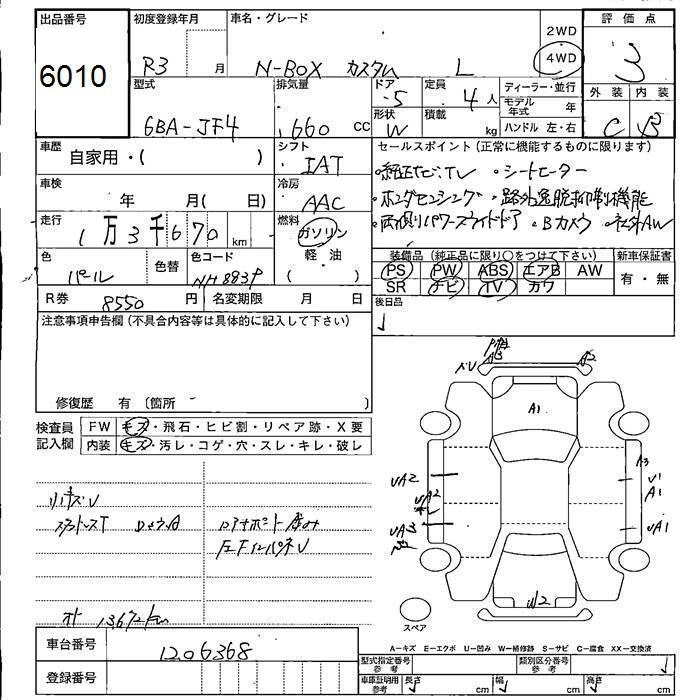 出品番号 初度登録年月 車名・グレード 評価点
6010 R3 月 N-BOX カスタム L 2WD 4WD 3
型式 排気量 ドア 定員 ディーラー・並行 外装 内装
6BA-JF4 660 cc 5 4人 モデル年式 年 C B
形状 W 積載 kg ハンドル 左・右
車歴 自家用・( ) シフト IAT セールスポイント (正常に機能するものに限ります)
・純正ナビ、TV ・シートヒーター
車検 年 月( 日) 冷房 AAC ・ホンダセンシング ・路外逸脱抑制機能
走行 1万3千670 km 燃料 ガソリン 軽・油 ( ) ・両側パワースライドドア ・Bカメラ ・社外AW
色 パール 色替 色コード NH883P
装備品 (純正品に限り○をつけて下さい) 新車保証書
PS PW ABS エアB AW 有・無
SR ナビ TV カワ
R券 8550円 名変期限 月 日 後日品
注意事項申告欄 (不具合内容等は具体的に記入して下さい)
修復歴 有 〔箇所 〕
検査員記入欄 FW キズ・飛石・ヒビ割・リペア跡・X要
内装 キズ・汚レ・コゲ・穴・スレ・キレ・破レ
A3 A2
A1
UA2 UA2 キレ UA3
A3 U1 A1 UA1
W2
リキズU
左Fインパネ U
13672km
スペア
A-キズ E-エクボ U-凹み W-補修跡 S-サビ C-腐食 XX-交換済
車台番号 1206368
登録番号
型式指定番号 参考 類別区分番号 参考
車庫証明用 参考 長さ cm 幅 cm 高さ cm